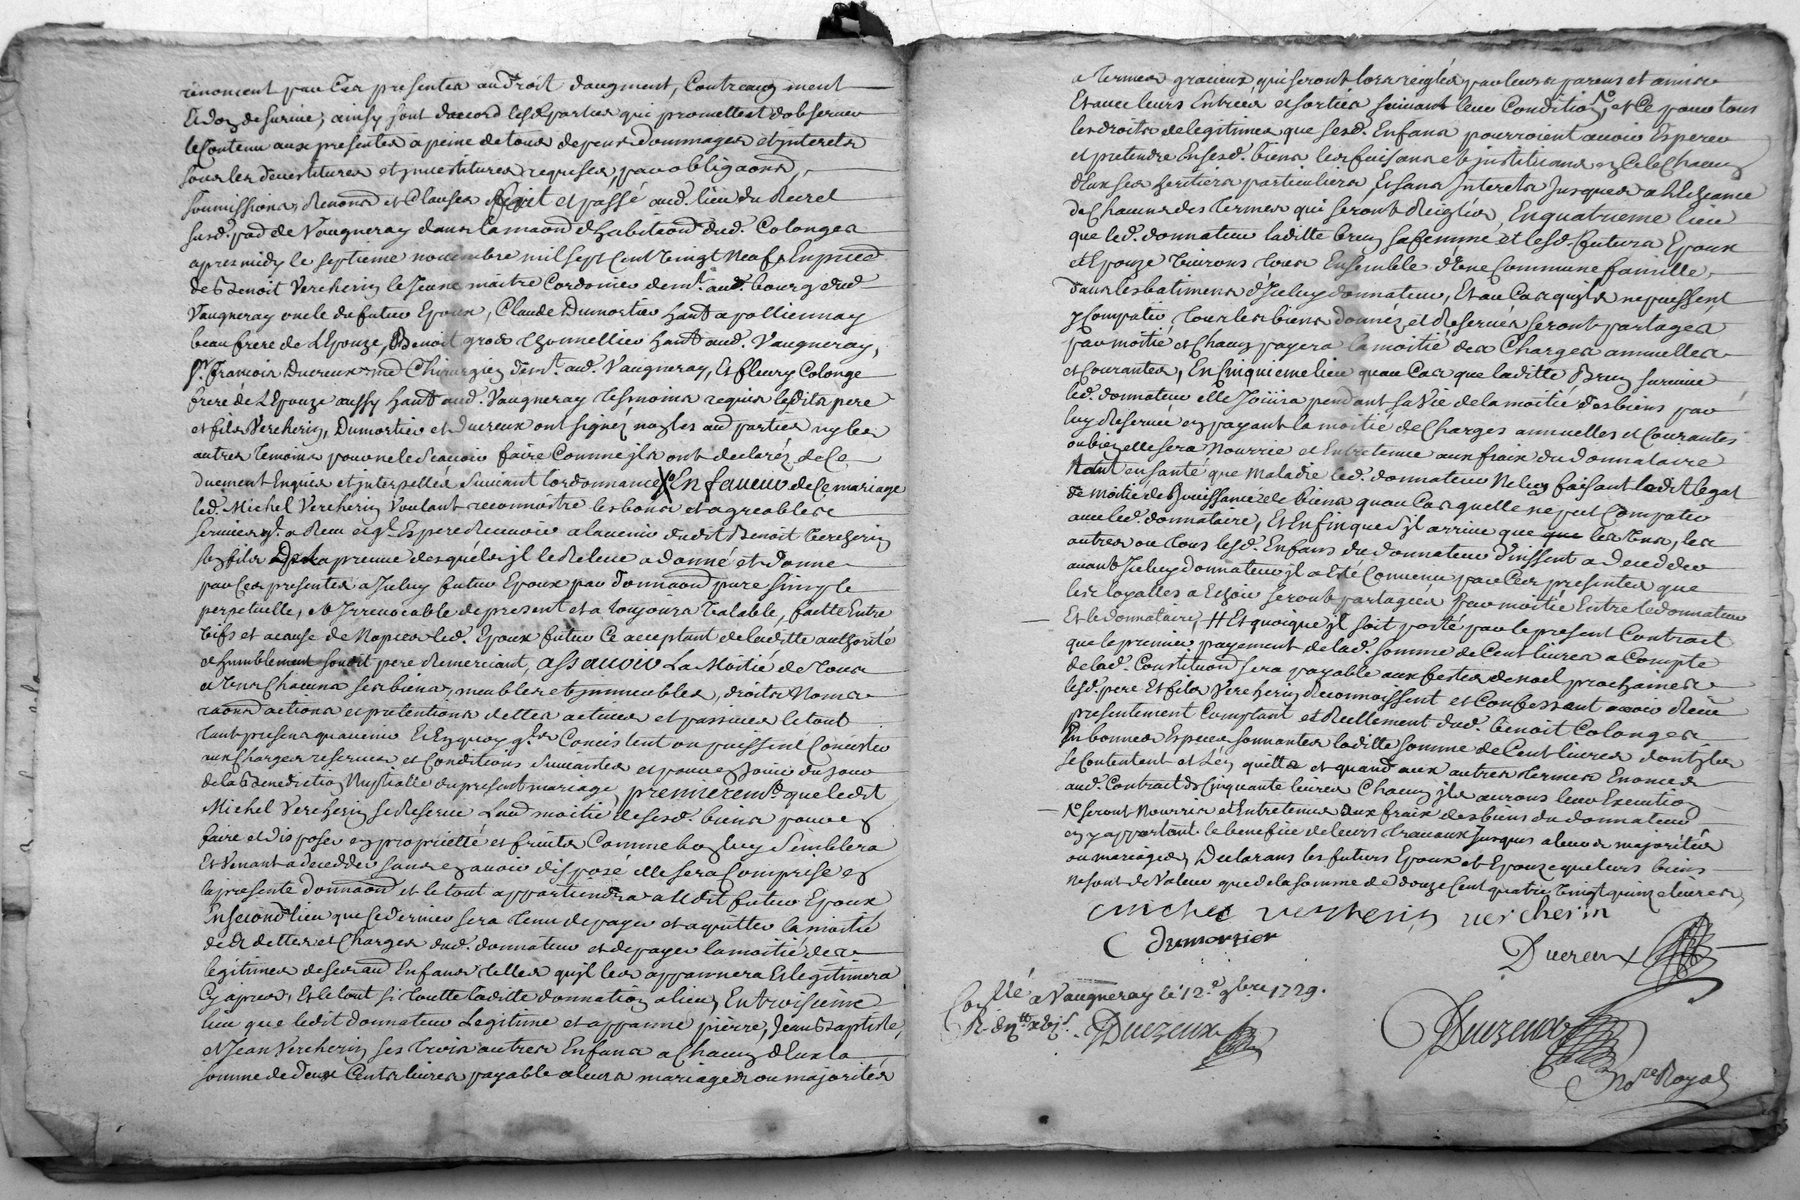 renoncent par Ces presentes au Droit daugment, Contreaugment
Et don de survie, ainsy sont daccord lesd parties qui promettent dobserver
le Contenu aux presentes a peine de tous depens dommages et interets
sous les devestitures et investitures requises, par obligaons,
soumissions, Renons et Clauses fait et passé aud. lieu du Recret
susd. pad de Vaugneray dans la maon d'habitaon dud. Colonges
apres midy le septieme novembre mil sept Cent Vingt Neuf, En pnce
de Benoit Vercherin le Jeune maitre Cordonier demt. aud. bourg dud
Vaugneray oncle du futur Epoux, Claude Dumortier habt a pollionnay
beaufrere de L'Epouze, Benoit gros thonnellier habt aud. Vaugneray,
sr. francois Ducreux md Chirurgien demt. aud. Vaugneray, Et fleury Colonge
frere de L'Epouze aussy habt aud. Vaugneray tesmoins requis lesdits pere
et fils Vercherin, Dumortier et Ducreux ont signéz non les aud parties ny les
autres temoins pour ne le Scavoir faire Comme ils ont declaréz de Ce
duement Enquis et interpellés suivant lordonnance X En faveur de Ce mariage
led. Michel Vercherin Voulant reconnoitre les bons et agreables
services qu'il a Reçu et qu'il Espere Recevoir a lavenir dudit Benoit Vercherin
son fils De la preuve desquels il le Releve a donné et donne
par Ces presentes a Iceluy futur Epoux par donnaon pure simple
perpetuelle, et Irrevocable de present et a toujours Valable, faitte Entre
Vifs et acause de Nopces led. Epoux futur Ce acceptant de laditte authorité
et humblement sondit pere Remerciant, assavoir La Moitié de tous
et Uns Chacuns ses biens, meubles et immeubles, droits Noms
raons actions et pretentions dettes actives et passives le tout
tant presens qu'avenir Et En quoy qu'ils Concistent ou puissent Concister
aux Charges reserves et Conditions Suivantes et pour En Jouir du jour
de la Benediction Nuptialle du present mariage, premierement que ledit
Michel Vercherin se Reserve Laud moitié de sesd. biens pour en
faire et disposer en proprietté et fruits Comme bon luy Semblera
Et Venant a deceder sans en avoir disposé elle sera Comprise en
la presente donnaon et le tout appartiendra audit futur Epoux
En second lieu que Ce dernier sera tenu de payer et aquitter la moitié
des dettes et Charges dud. donnateur et de payer la moitié des
legitimes de ses aud Enfans telles qu'il les appannera Et legitimera
Cy apres, Et le tout si toutte laditte donnation a lieu, En troisieme
lieu que ledit donnateur Legitime et appanne pierre, Jean Baptiste,
et Jean Vercherin ses trois autres Enfans a Chacun d'Eux la
somme de deux Cents livres payable a leurs mariages ou majorités
a termes gracieux qui seront lors reiglés par leurs parens et amis
Et avec leurs Entrées et sorties suivant leur Condition, et Ce pour tous
les droits de legitimes que sesd. Enfans pourroient avoir Esperer
et pretendre En sesd. biens les faisant et instituant en Ce le Chacun
d'Eux ses heritiers particuliers, Et sans Interets Jusques a l'Echeance
de Chacuns des termes qui seront Reiglés, En quatrieme lieu
que led. donnateur laditte brun sa femme et lesd. futurs Epoux
et Epouze Vivrons tous Ensemble d'Une Commune famille,
dans les batimens d'Iceluy donnateur, Et au Cas quils ne puissent,
y Compatir, tous les biens donnez et Reservés seront partagés
par moitié et Chacun payera la moitié des Charges annuelles
et Courantes, En Cinquieme lieu qu'au Cas que laditte Brun survive
led. donnateur elle Joüira pendant sa Vie de la moitié des biens par
luy Reservés en payant la moitié de Charges annuelles et Courantes
ou bien elle sera Nourrie et Entretenue aux fraix du donnataire
tant en santé que Maladie led. donnateur Ne luy faisant ledit legat
de moitié de Jouissance de biens qu'au Cas quelle ne put Compatir
avec led. donnataire, Et Enfin que s'il arrive que les Uns, les
autres ou tous lesd. Enfans du donnateur Vinssent a deceder
avant Iceluy donnateur il a Eté Convenu par Ces presentes que
les loyalles a Echoir seront partagées par moitié Entre le donnateur
Et le donnataire, # Et quoique il soit porté par le present Contrait
que le premier payement de lad. somme de Cent livres a Compte
de lad. Constitution sera payable aux festes de noel prochaines
lesd. pere Et fils Vercherin Reconnoissent et Confessent avoir Reçu
presentement Comptant et Reellement dud. benoit Colonges
En bonnes Especes sonnantes laditte somme de Cent livres dont ils
se Contentent et Len quitte et quand aux autres termes Enoncés
aud. Contrait de Cinquante livres Chacun ils aurons leur Execution
seront Nourris et Entretenus aux fraix des biens du donnateur
en y apportant le benefice de leurs travaux Jusques a leurs majorités
ou mariages, Declarans les futurs Epoux et Epouze que leurs biens
ne sont de Valeur que de la somme de douze Cent quatre Vingt quinze livres
michel vercherin vercherin
C dumortier
Ducreux
Conllé a Vaugneray le 12e 9bre 1729.
Duezeux
Duezeux
nore Royal